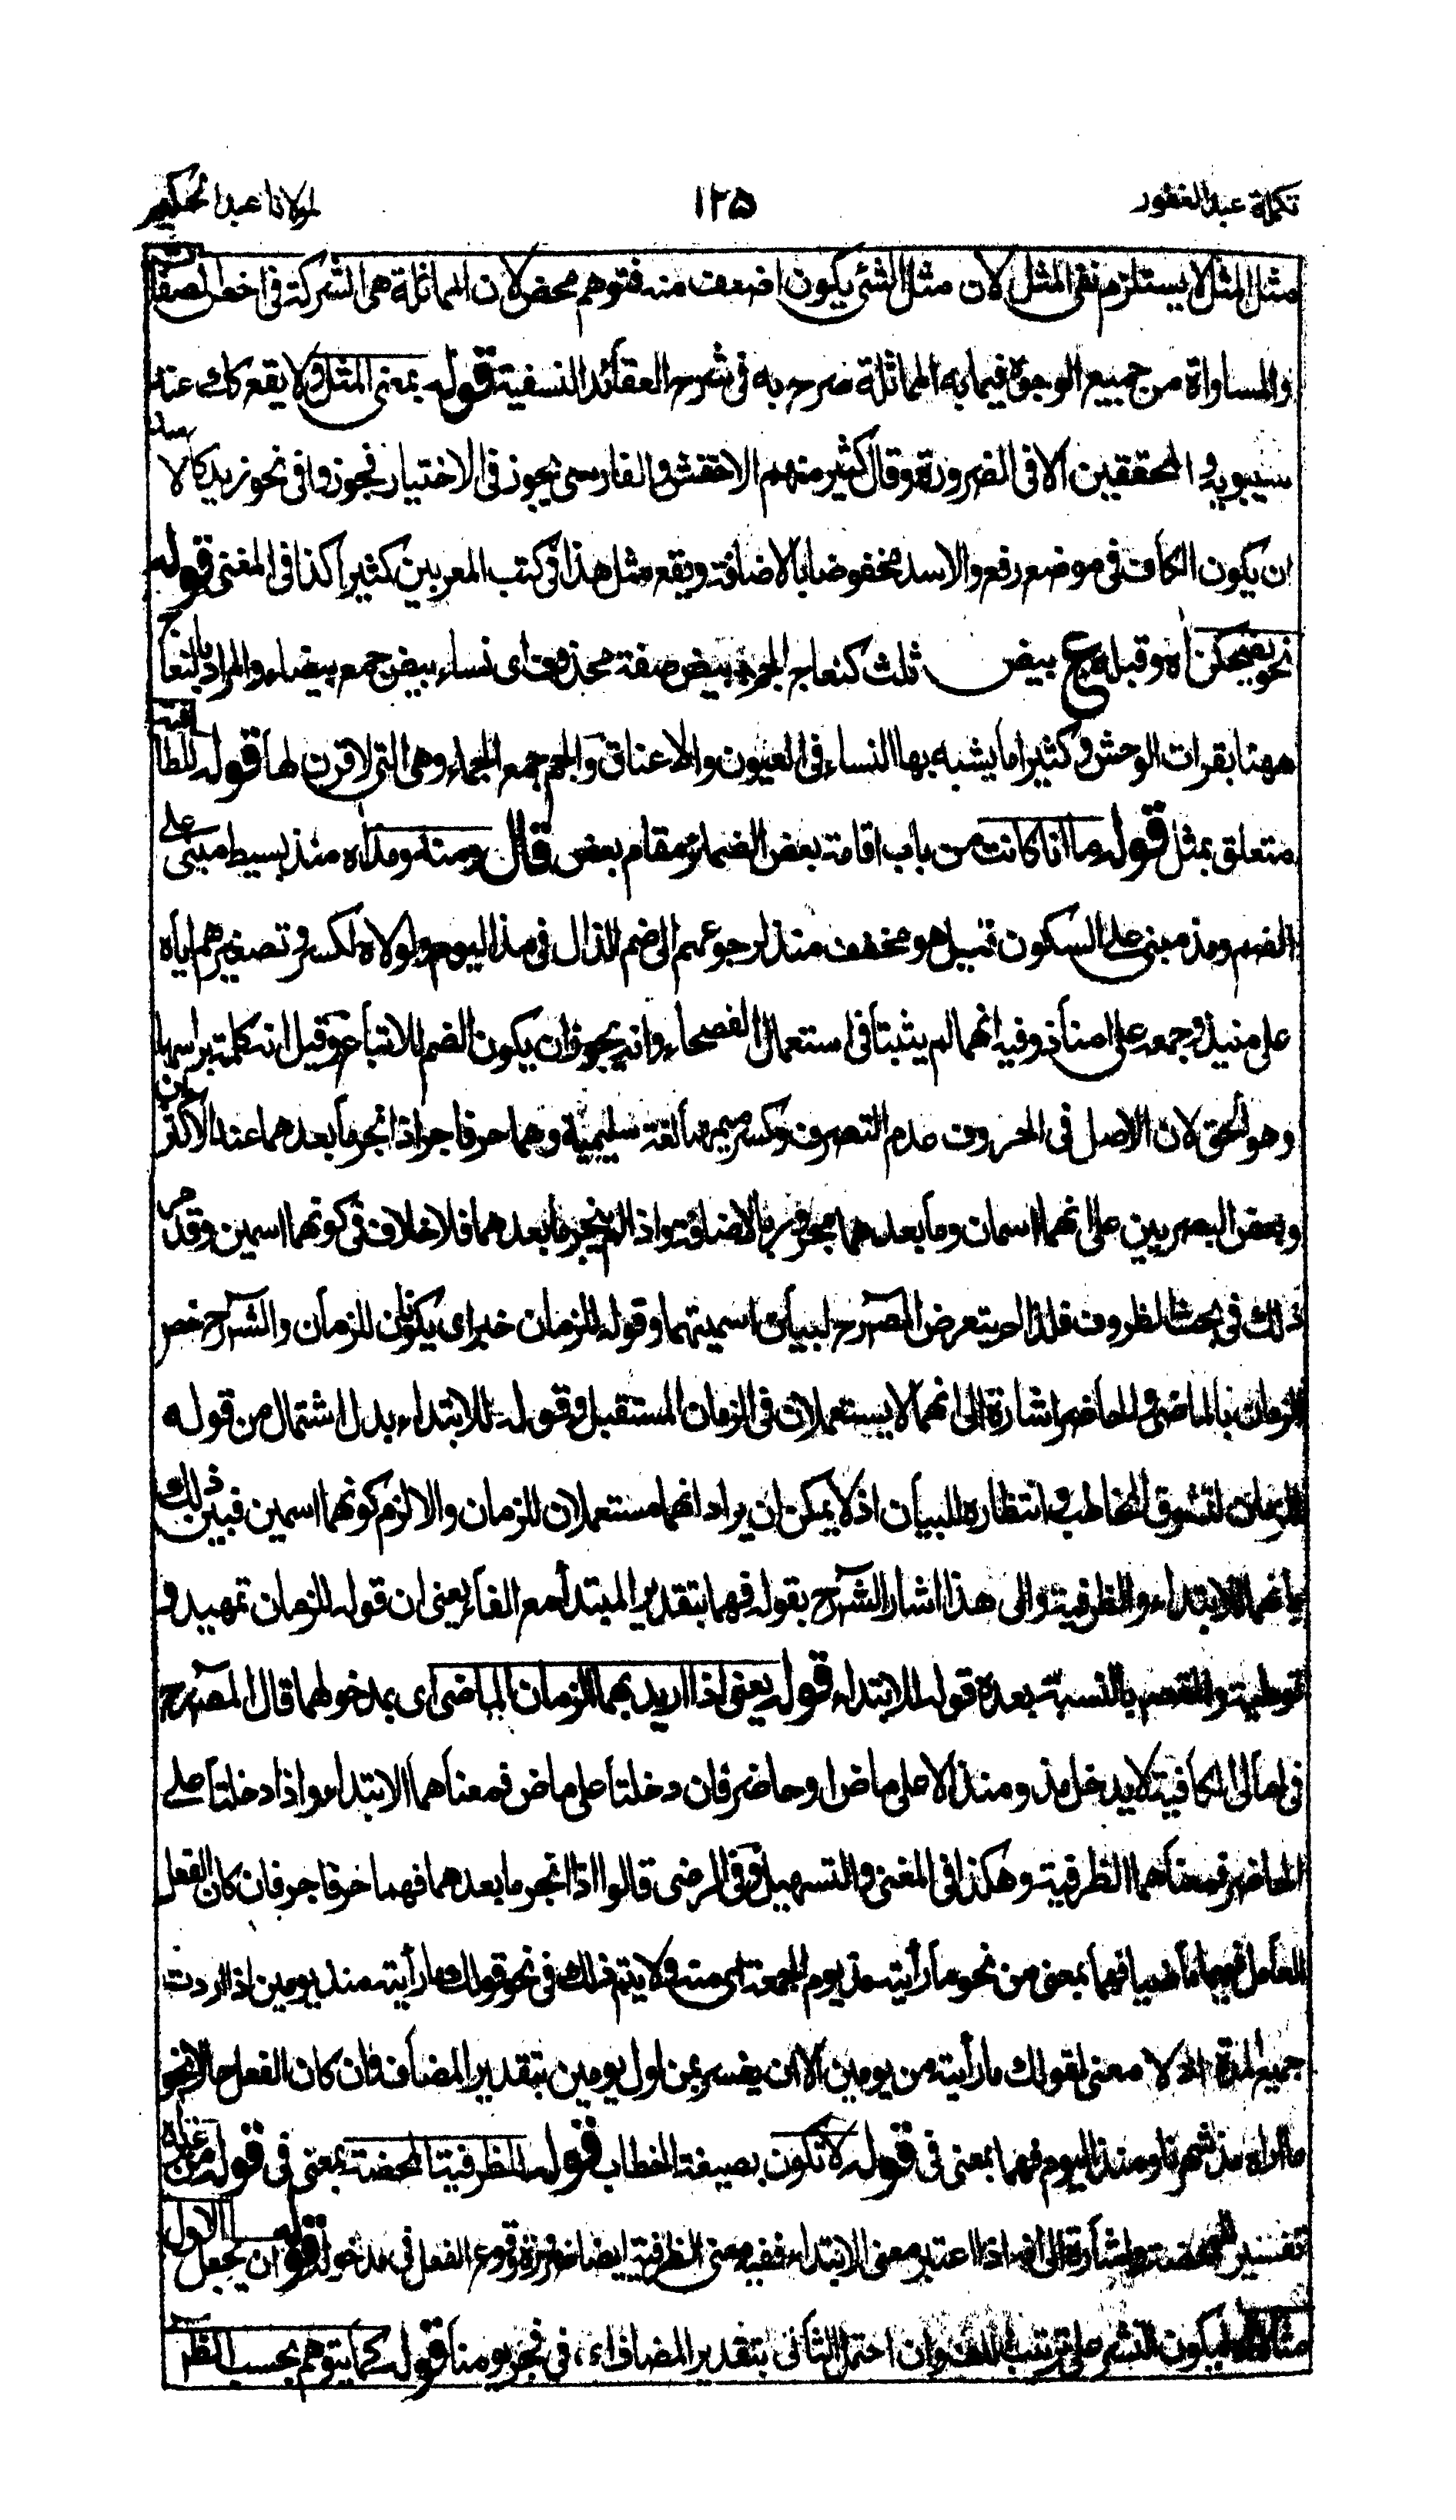 تكملة عبد الغفور ١٢٥ لمولانا عبد الحكيم
مثل المثل لا يستلزم نفى المثل لان مثل الشئ يكون اضعف منه فتوهم محض لان المماثلة هى الشركة فى اخص الصفات
والمساواة من جميع الوجوه فيما به المماثلة صرح به فى شرح العقائد النسفية قوله بمعنى المثل ولا يقع كذلك عند
سيبويه والمحققين الا فى الضرورة وقال كثير منهم الاخفش والفارسى يجوز فى الاختيار فجوزوا فى نحو زيد كالاسد
ان يكون الكاف فى موضع رفع والاسد مخفوضا بالاضافة ويقع مثل هذا فى كتب المعربين كثيرا كذا فى المغنى قوله
نحو يضحكن اه وقبله ع بيض ثلث كنعاج الجم بيض صفة محذوف اى نساء بيض جمع بيضاء والمراد بالنعاج
ههنا بقرات الوحش وكثيرا ما يشبه بها النساء فى العيون والاعناق والجم جمع الجماء وهى التى لا قرن لها قوله للطافته
متعلق بمثل قوله ما انا كانت من باب اقامة بعض الضمائر مقام بعض قال ومنذ ومذ اه منذ بسيط مبنى على
الضم ومذ مبنى على السكون قيل هو مخفف منذ لرجوعهم الى ضم الذال فى مذ اليوم ولولاه لكسر وتصغيرهم اياه
على منيذ وجمعه على امناذ وفيه انهما لم يثبتا فى استعمال الفصحاء وانه يجوز ان يكون الضم للاتباع وقيل انه كلمة براسها
وهو الحق لان الاصل فى الحروف عدم التصرف وكسر ميمهما لغة سليمية وهما حرفا جر اذا انجر ما بعدهما عند الاكثرين
وبعض البصريين على انهما اسمان وما بعدهما مجرور بالاضافة واذا لم ينجر ما بعدهما فلا خلاف فى كونهما اسمين وقد مر
ذلك فى بحث الظروف فلذا لم يتعرض المصرح لبيان اسميتهما وقوله للزمان خبر اى يكونان للزمان والشرح خص
الزمان بالماضى والحاضر اشارة الى انهما لا يستعملان فى الزمان المستقبل وقوله للابتداء بدل اشتمال من قوله
للزمان لتشوق المخاطب وانتظاره للبيان اذ لا يمكن ان يراد انهما مستعملان للزمان والا لزم كونهما اسمين فبين ذلك
بانهما للابتداء والظرفية والى هذا اشار الشرح بقوله فهما بتقدير المبتدأ مع الفاء يعنى ان قوله للزمان تمهيد و
توطية والقصد بالنسبة بعده قوله للابتداء قوله يعنى اذا اريد بهما الزمان الماضى اى بمدخولهما قال المصرح
فى امالى الكافية لا يدخل مذ ومنذ الا على ماض او حاضر فان دخلتا على ماض فمعناهما الابتداء واذا دخلتا على
الحاضر فمعناهما الظرفية وهكذا فى المغنى والتسهيل وفى الرضى قالوا اذا انجر ما بعدهما فهما حرفا جر فان كان الفعل
العامل فيهما ماضيا فهما بمعنى من نحو ما رأيته مذ يوم الجمعة اى منه ولا يتم ذلك فى نحو قولك ما رأيته منذ يومين اذا اردت
جميع المدة اذ لا معنى لقولك ما رأيته من يومين الا ان يفسر بمن اول يومين بتقدير المضاف وان كان الفعل حالا نحو
ما اراه مذ شهرنا ومنذ اليوم فهما بمعنى فى قوله لا تكون بصيغة الخطاب قوله الظرفية المحضة بمعنى فى قوله من غير
تفسير المحضة واشارة الى انه اذا اعتبر معنى الابتداء ففيه معنى الظرفية ايضا ضرورة وقوع الفعل فى مدخوله قوله ان يجعل الاول
ليكون النشر على ترتيب اللف وان احتمل الثانى بتقدير المضاف اى فى نحو يومنا قوله كما يتوهم بحسب الظاهر